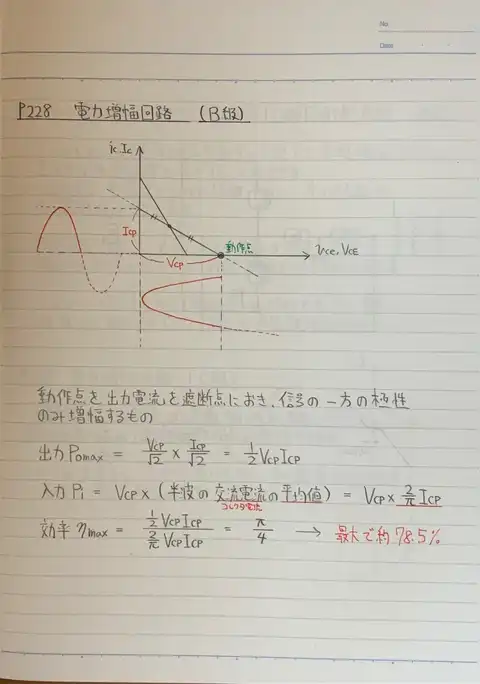 No.
Date
P228 電力増幅回路 (B級)
ic.Ic
Icp
動作点
Vcp
vce, VCE
動作点を出力電流を遮断点におき、信号の一方の極性
のみ増幅するもの
出力Pomax = Vcp/√2 × Icp/√2 = 1/2 VcpIcp
入力Pi = Vcp × (半波の交流電流の平均値) = Vcp × 2/π Icp
コレクタ電流
効率ηmax = 1/2 VcpIcp / 2/π VcpIcp = π/4 → 最大で約78.5%